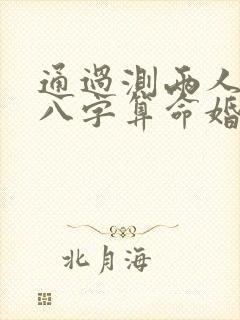 通過測兩人
八字算命婚
北月海